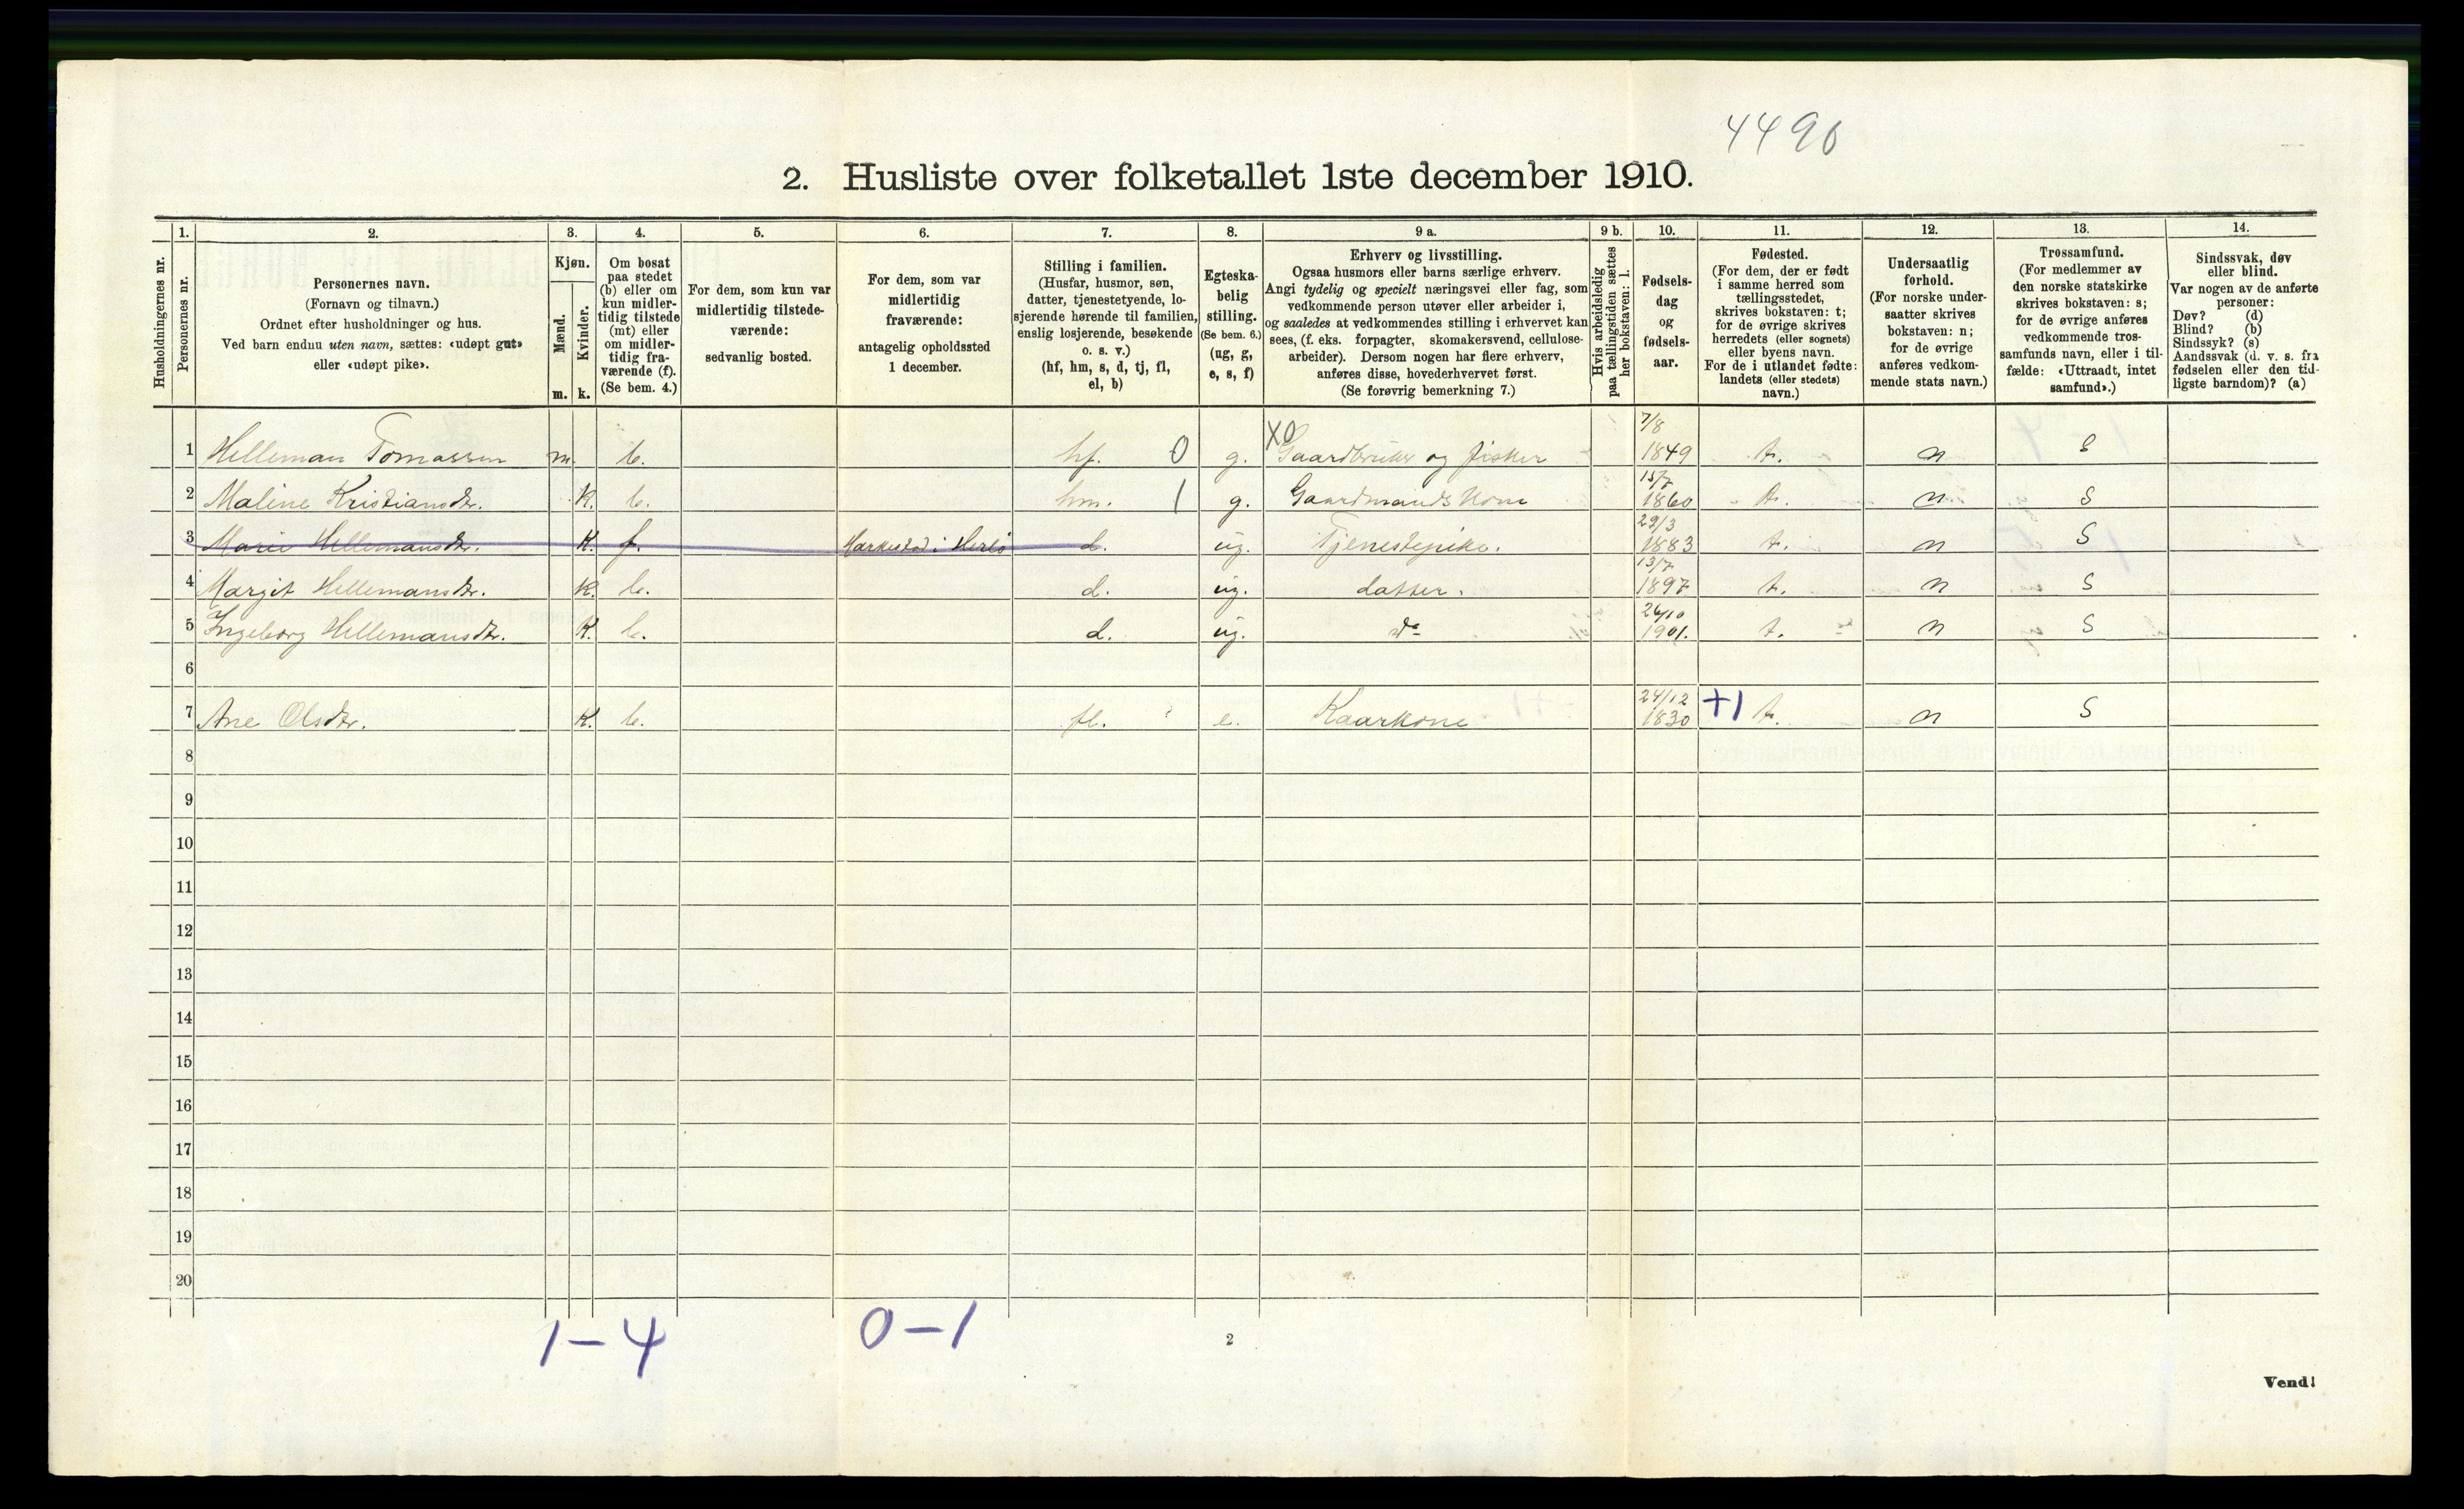 4490
2. Husliste over folketallet 1ste december 1910.
Husholdningernes nr.
1.
Personernes nr.
2.
Personernes navn.
(Fornavn og tilnavn.)
Ordnet efter husholdninger og hus.
Ved barn endnu uten navn, sættes: «udøpt gut»
eller «udøpt pike».
3.
Kjøn.
Mænd.
Kvinder.
m. k.
4.
Om bosat
paa stedet
(b) eller om
kun midler-
tidig tilstede
(mt) eller
om midler-
tidig fra-
værende (f).
(Se bem. 4.)
5.
For dem, som kun var
midlertidig tilstede-
værende:
sedvanlig bosted.
6.
For dem, som var
midlertidig
fraværende:
antagelig opholdssted
1 december.
7.
Stilling i familien.
(Husfar, husmor, søn,
datter, tjenestetyende, lo-
sjerende hørende til familien,
enslig losjerende, besøkende
o. s. v.)
(hf, hm, s, d, tj, fl,
el, b)
8.
Egteska-
belig
stilling.
(Se bem. 6.)
(ug, g,
e, s, f)
9 a.
Erhverv og livsstilling.
Ogsaa husmors eller barns særlige erhverv.
Angi tydelig og specielt næringsvei eller fag, som
vedkommende person utøver eller arbeider i,
og saaledes at vedkommendes stilling i erhvervet kan
sees, (f. eks. forpagter, skomakersvend, cellulose-
arbeider). Dersom nogen har flere erhverv,
anføres disse, hovederhvervet først.
(Se forøvrig bemerkning 7.)
9 b.
Hvis arbeidsledig
paa tællingstiden sættes
her bokstaven: l.
10.
Fødsels-
dag
og
fødsels-
aar.
11.
Fødested.
(For dem, der er født
i samme herred som
tællingsstedet,
skrives bokstaven: t;
for de øvrige skrives
herredets (eller sognets)
eller byens navn.
For de i utlandet fødte:
landets (eller stedets)
navn.)
12.
Undersaatlig
forhold.
(For norske under-
saatter skrives
bokstaven: n;
for de øvrige
anføres vedkom-
mende stats navn.)
13.
Trossamfund.
(For medlemmer av
den norske statskirke
skrives bokstaven: s;
for de øvrige anføres
vedkommende tros-
samfunds navn, eller i til-
fælde: «Uttraadt, intet
samfund».)
14.
Sindssvak, døv
eller blind.
Var nogen av de anførte
personer:
Døv? (d)
Blind? (b)
Sindssyk? (s)
Aandssvak (d. v. s. fra
fødselen eller den tid-
ligste barndom)? (a)
1 Helleman Tomassen m. b. hf. 0 g. X0 Gaardbruker og fisker 7/8 1849 t. n S
2 Maline Kristiansdtr. K. b. hm. 1 g. Gaardmandskone 15/7 1860 t. n S
3 Marie Hellemansdtr. K. f. Herlø d. ug. Tjenestepike. 29/3 1883 t. n S
4 Margit Hellemansdtr. K. b. d. ug. datter. 13/7 1897 t. n S
5 Ingeborg Hellemansdtr. K. b. d. ug. do 1901. t. n S
6
7 Ane Olsdtr. K. b. fl. e. Kaarkone 24/12 1830 +1 t. n S
8
9
10
11
12
13
14
15
16
17
18
19
20
1-4 0-1
2
Vend!